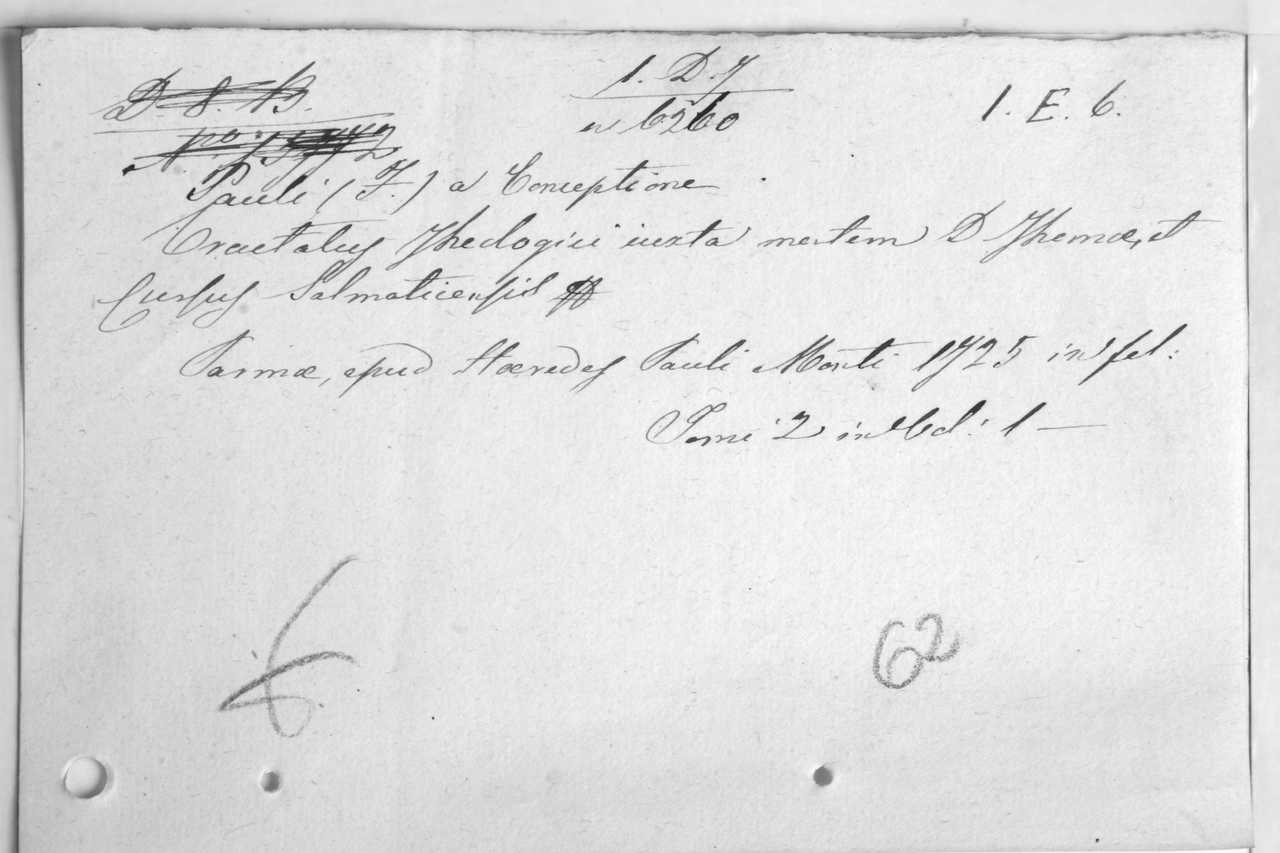 D. 8. B.
1. D. 7
n 6260
1. E. 6.
Pauli (F.) a Conceptione
Tractatus Theologici iuxta mentem D Thomæ, et
Cursus Salmaticensis
Parmæ, apud Hæredes Pauli Monti 1725 in fol:
Tomi 2 in Vol: 1 —
62